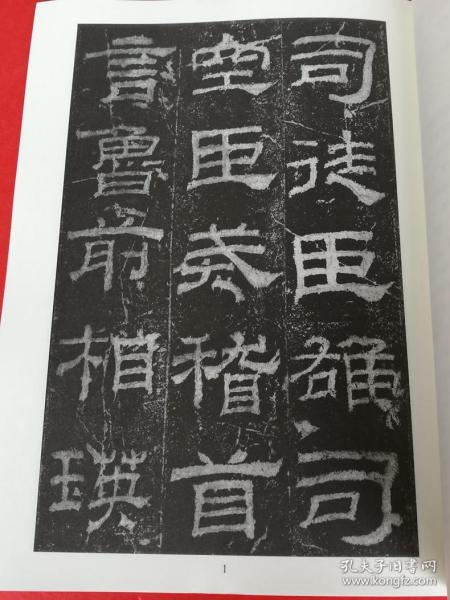 司徒臣雄司
空臣戒稽首
言魯前相瑛
1
孔夫子旧书网
www.kongfz.com